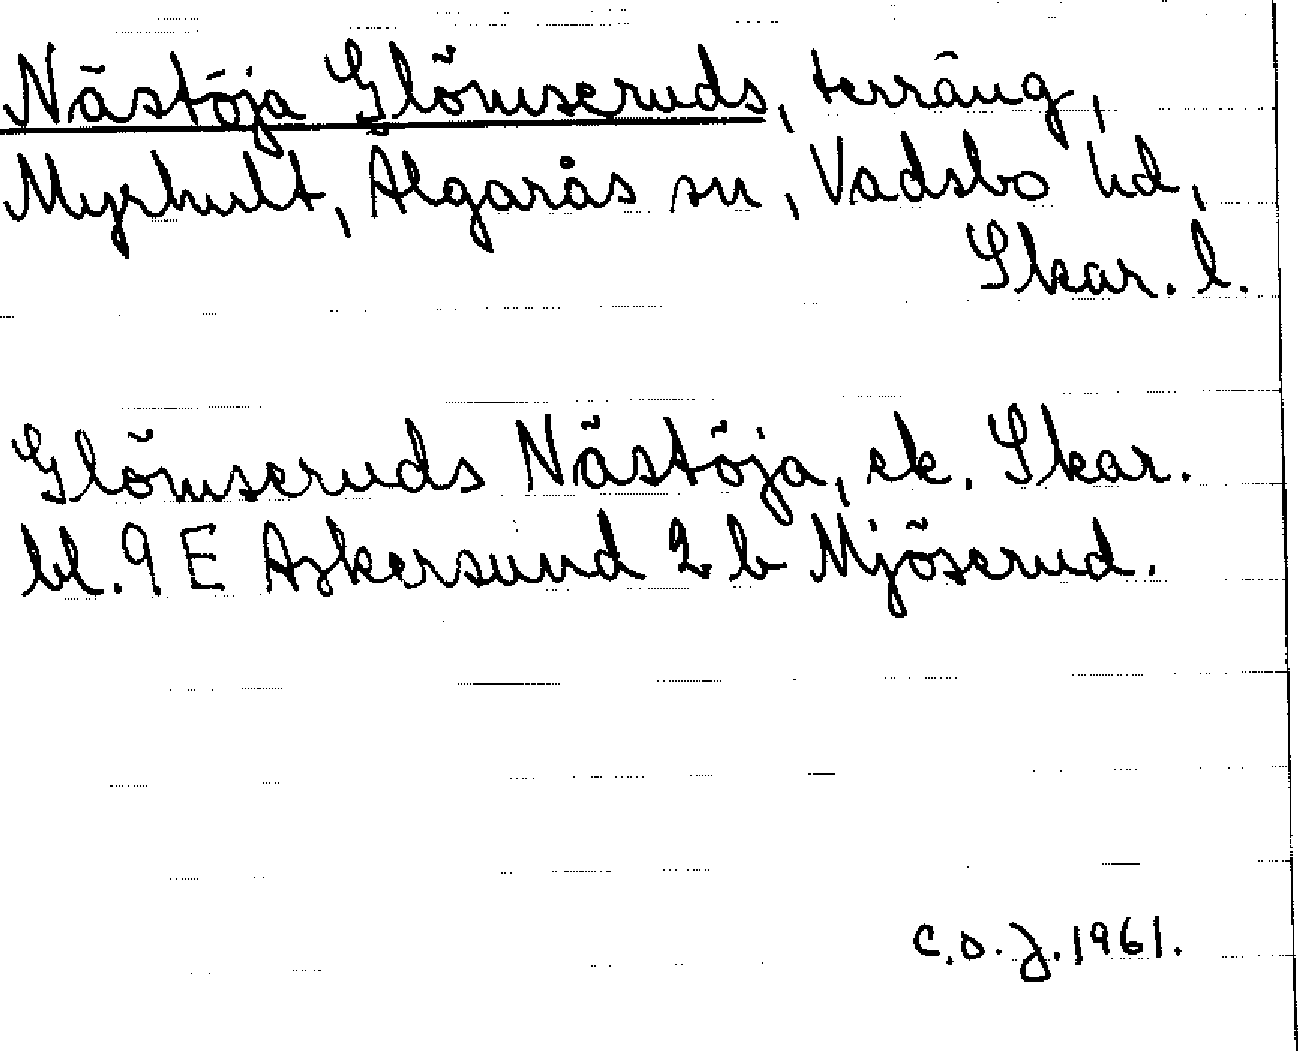 Nästöja Glömseruds, terräng,
Myrhult, Älgarås sn, Vadsbo hd,
Skar. l.
Glömseruds Nästöja, ek. Skar.
bl. 9 E Askersund 2 b Mjöserud.
C.O.J. 1961.